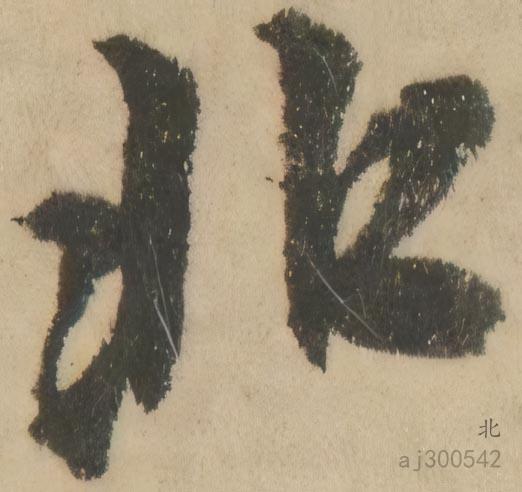 北
北
aj300542